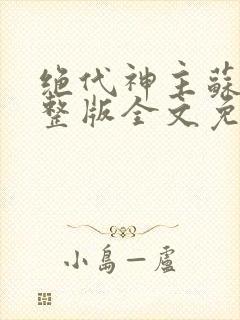 绝代神主蘇
整版全文免
小島一盧